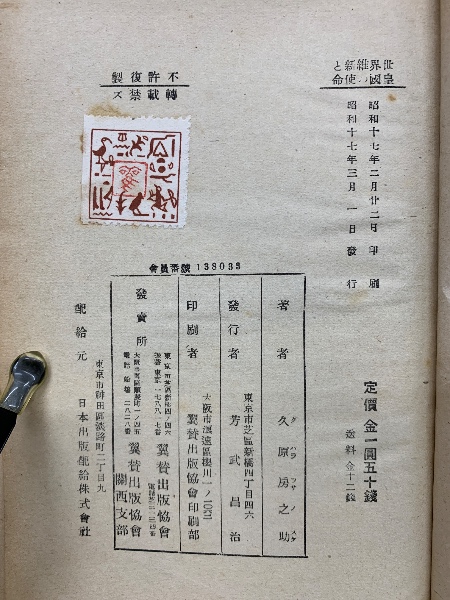 世界維新と
皇國ノ使命
昭和十七年二月廿二日 印刷
昭和十七年三月一日 發行
不許復製
轉載禁ズ
定價金一圓五十錢
送料金十二錢
會員番號 138033
著者 久原房之助
クハラフサノスケ
發行者 東京市芝區新橋四丁目四六
芳武昌治
印刷者 大阪市浪速區櫻川一ノ
翼賛出版協會印刷部
發賣所
東京市芝區新橋四ノ四六
翼賛出版協會
翼賛出版協會
關西支部
配給元 東京市神田區淡路町二丁目九
日本出版配給株式會社